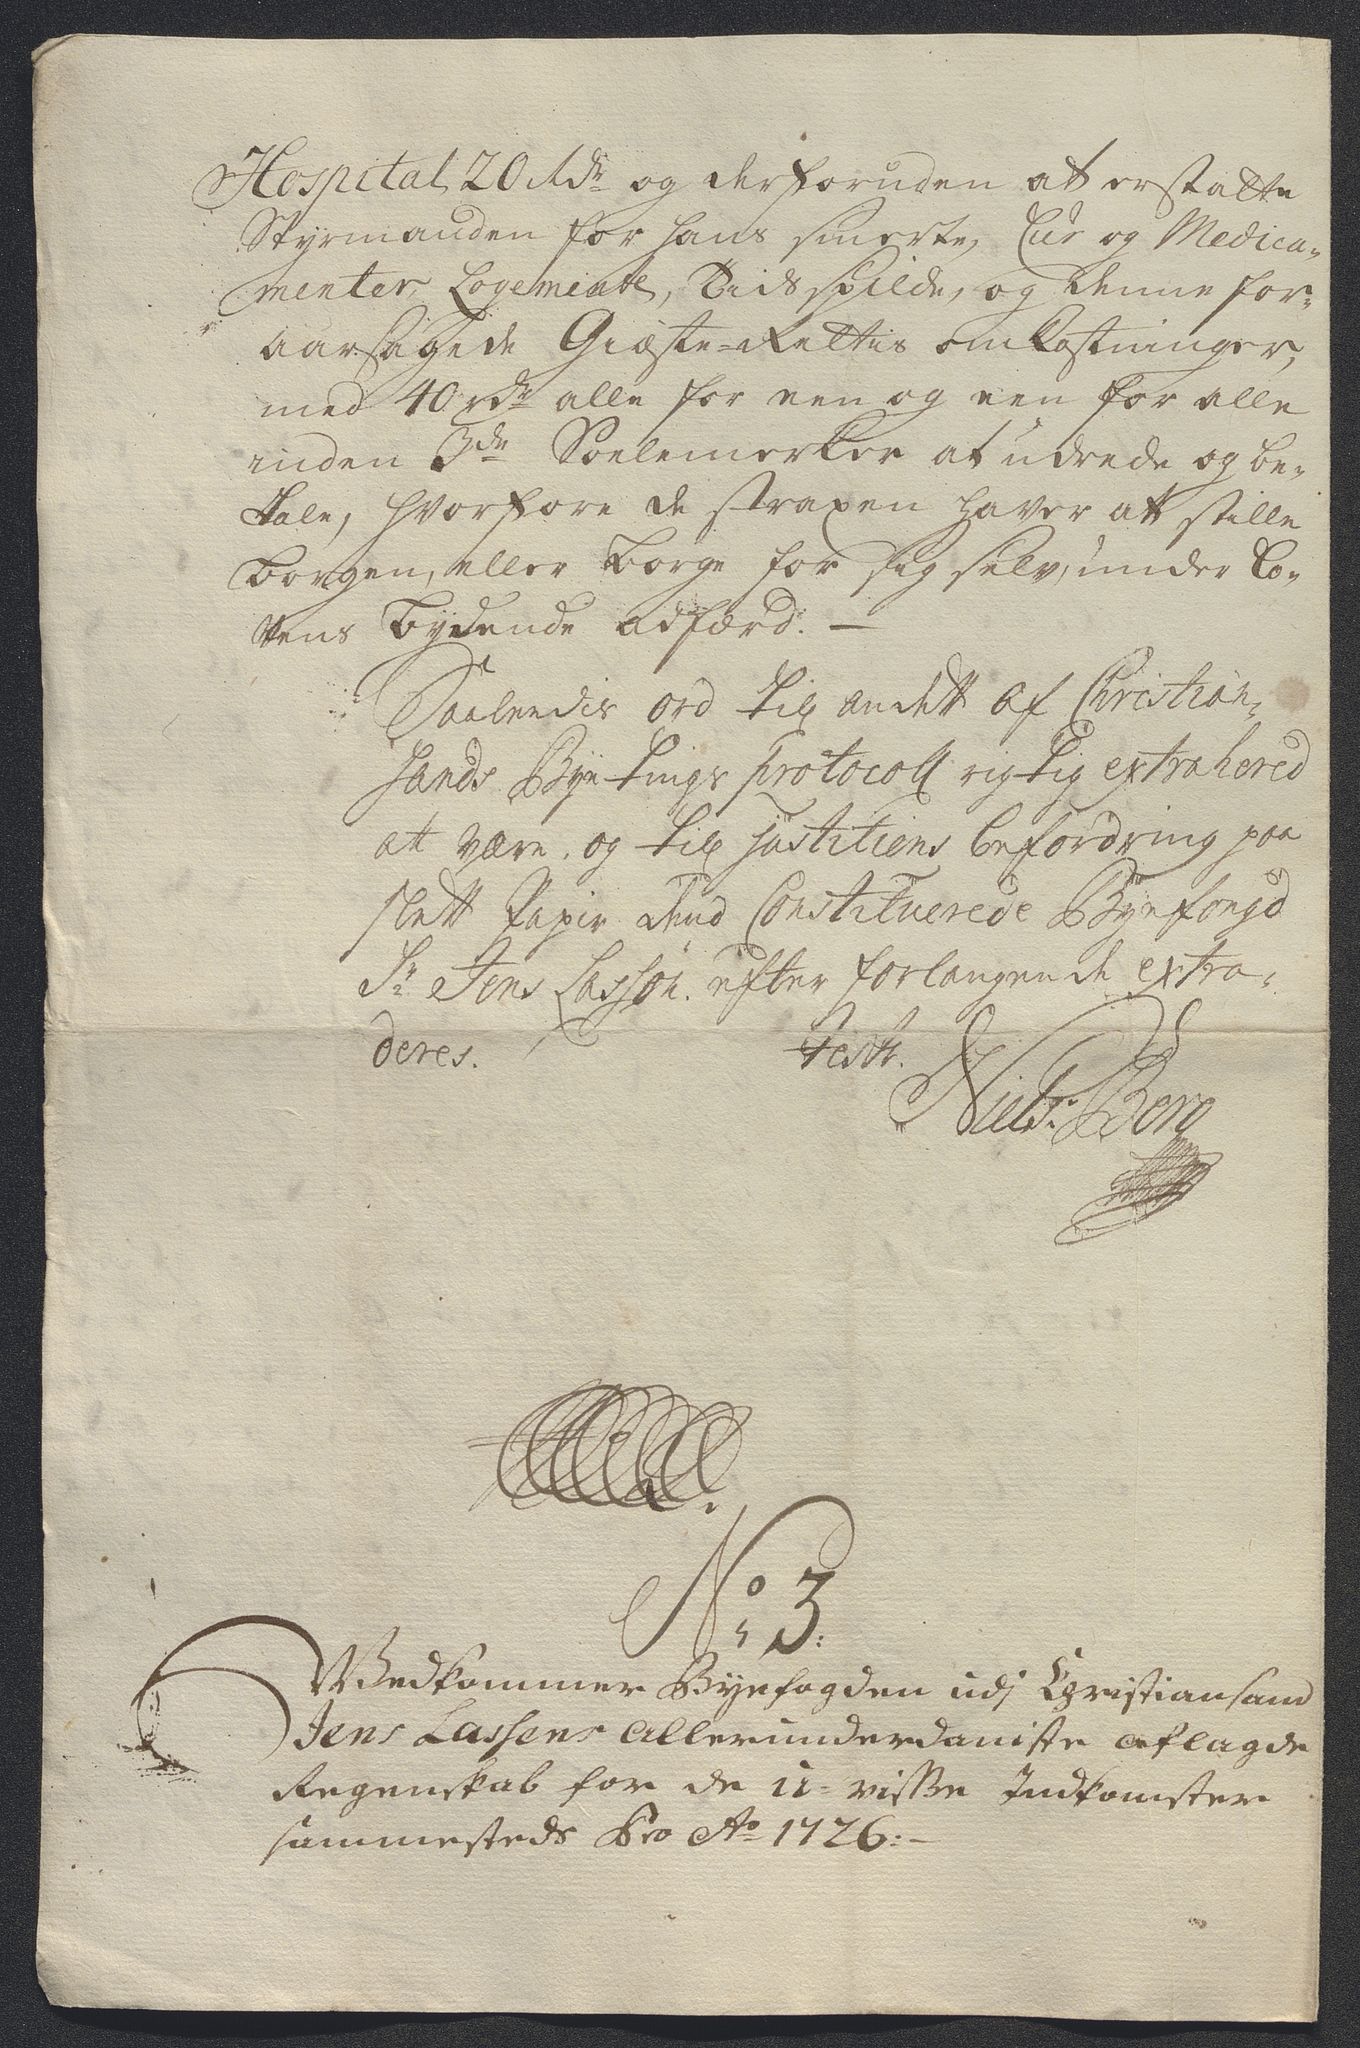 Hospital, 20 Rdr og derforuden at erstatte
Styrmanden for hans smerte, Cur og Medica-
menter, Logemente, Tids spilde, og denne for-
aarsagede Giæste-Rettis omkostninger,
med 40 rdr alle for een og een for alle
inden 3de Soelemerker at udrede og be-
tale, hvorfore de straxen haver att stille
borgen, eller borge for sig selv, under Lo-
vens bydende adfærd. —
Saaleedis ord til andett af Christian-
sands Bye tings protocoll rigtig extrahered
att være, og til justitiens befordring paa
slett Papir dend Constituerede Byefougd
Sr. Jens Lassøn efter forlangende extra-
deres. Test.
Niels Berg
No. 3:
Vedkommer Byefogden udj Christiansand
Jens Lassens allerunderdaniste aflagde
Regenskab for de u-visse Indkomster
sammesteds Pro Ao 1726:-